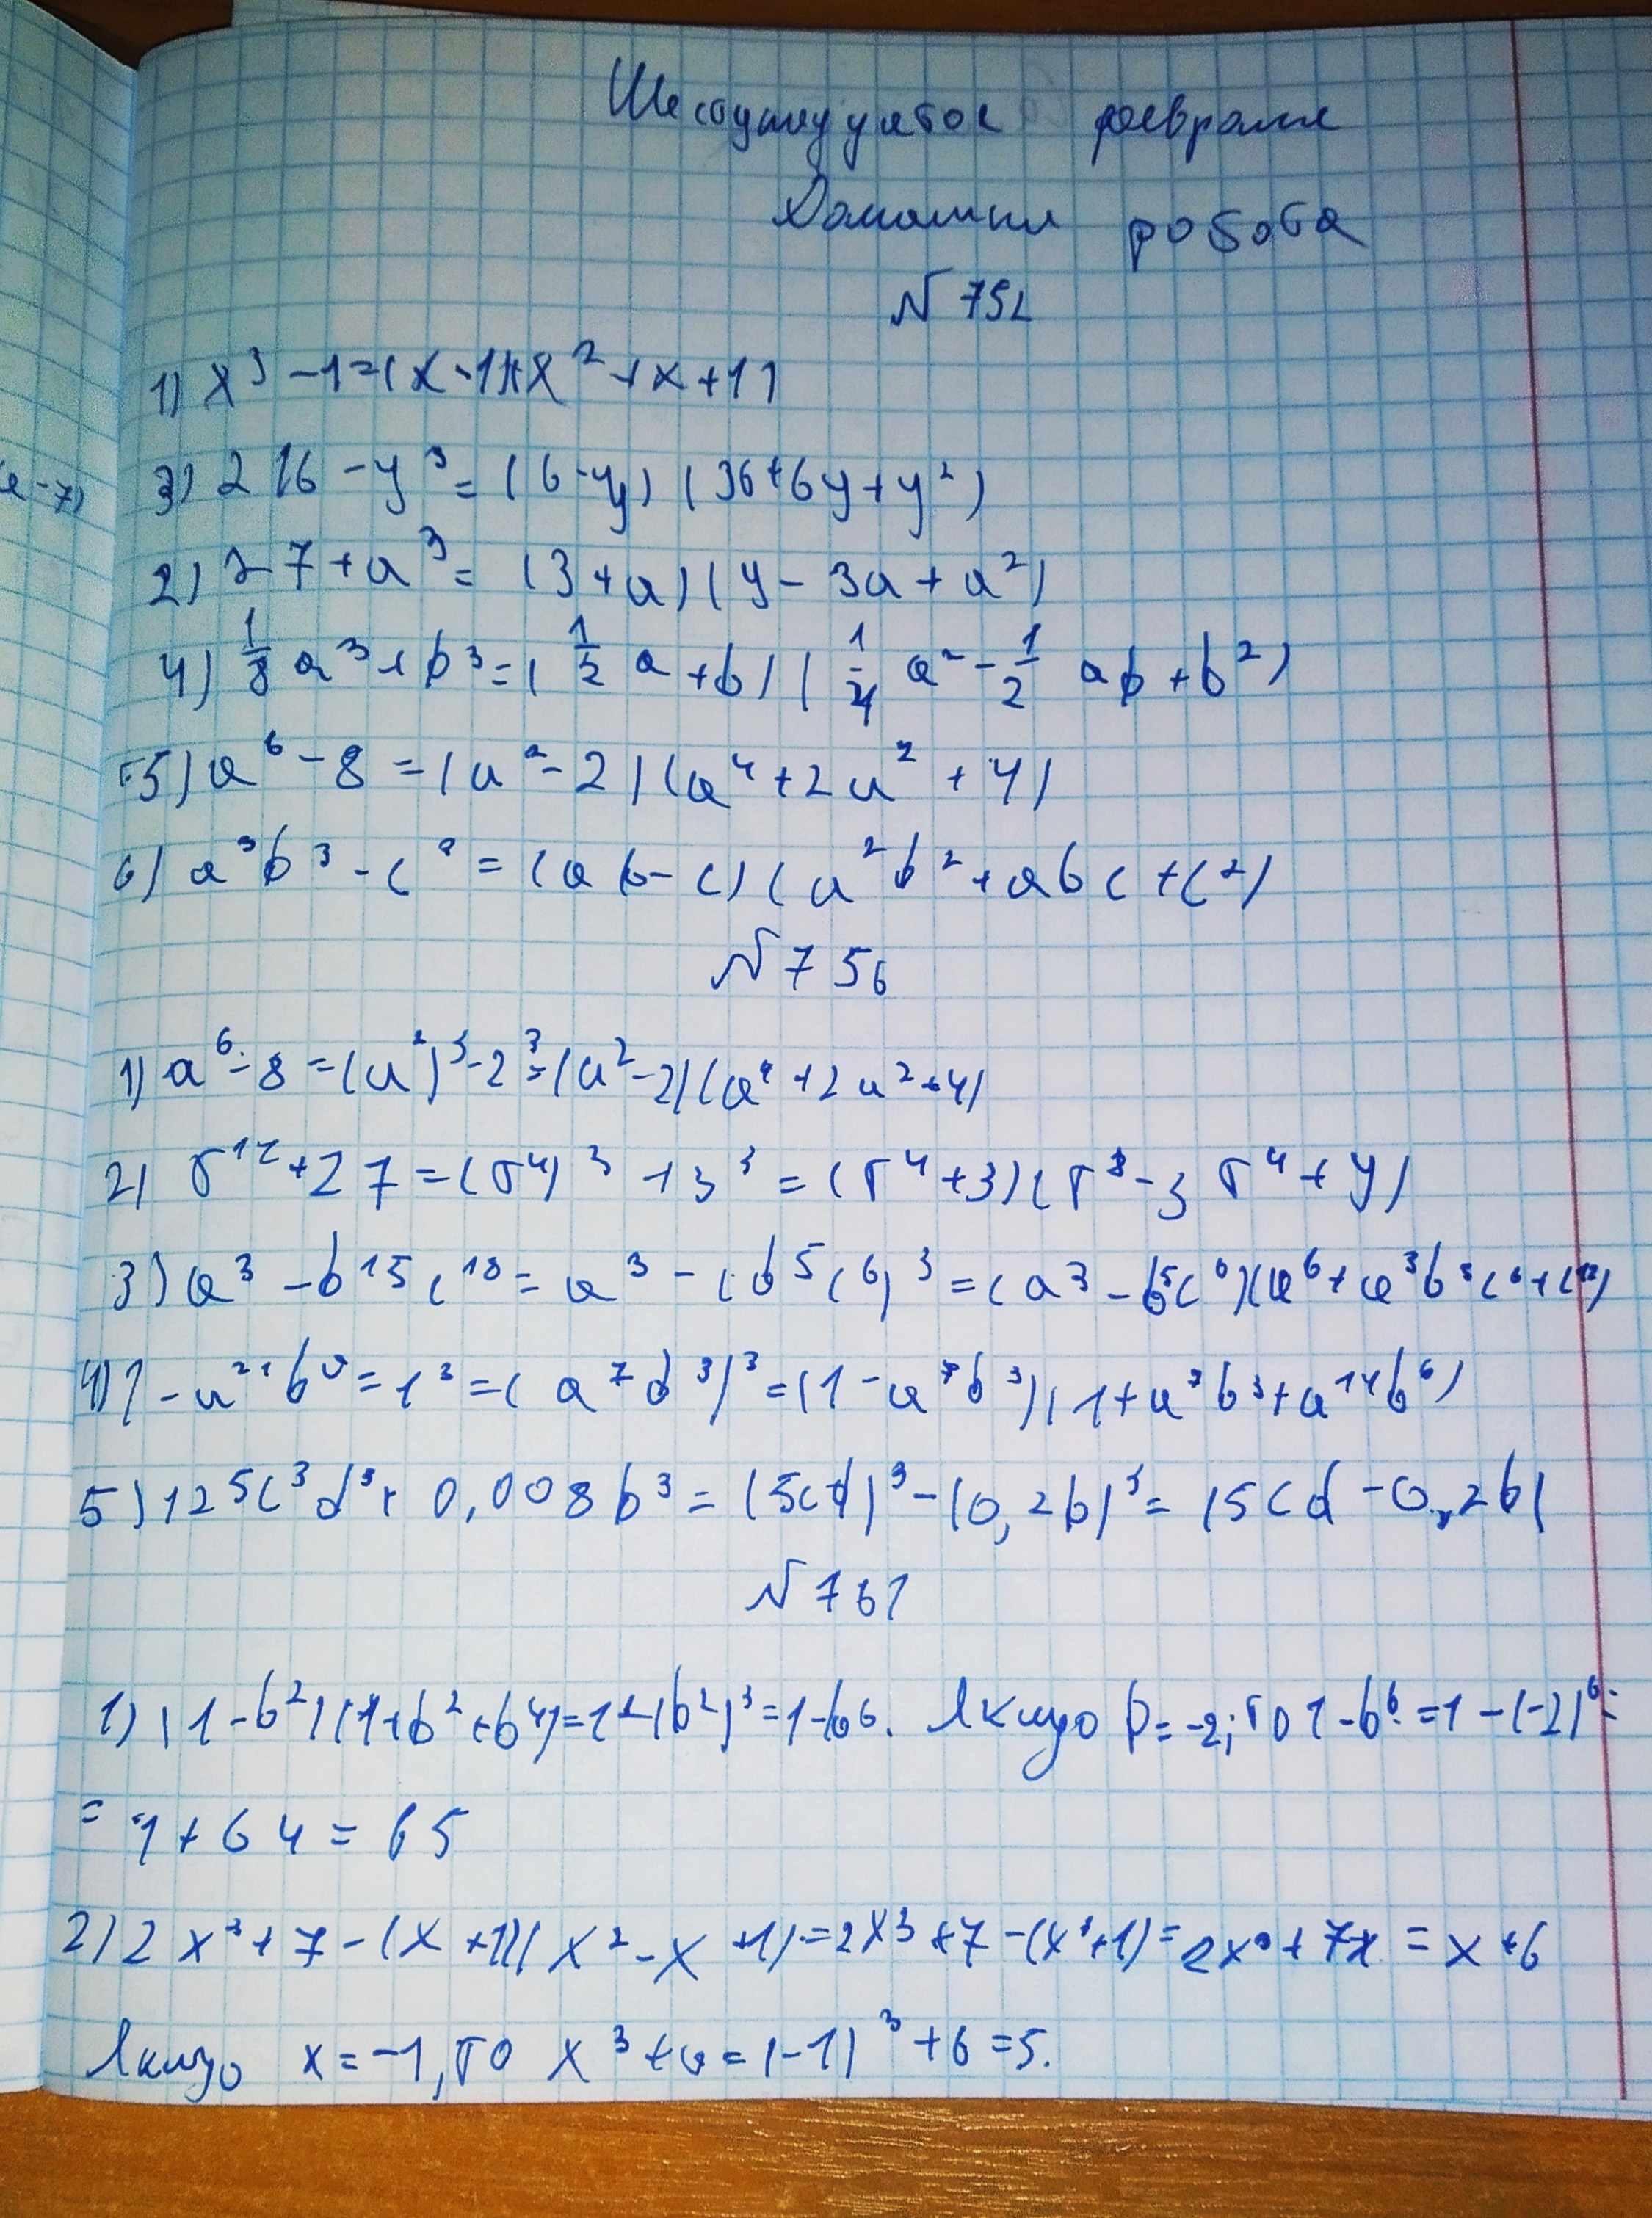 Шестнадцятое февраля
Домашня робота
N 752
1) x³ - 1 = (x - 1)(x² + x + 1)
3) 216 - y³ = (6 - y) (36 + 6y + y²)
2) 27 + a³ = (3 + a) (9 - 3a + a²)
4) 1/8 a³ + b³ = (1/2 a + b) (1/4 a² - 1/2 ab + b²)
5) a⁶ - 8 = (a² - 2) (a⁴ + 2a² + 4)
6) a³b³ - c³ = (ab - c) (a²b² + abc + c²)
N 756
1) a⁶ - 8 = (a²)³ - 2³ = (a² - 2) (a⁴ + 2a² + 4)
2) т¹² + 27 = (т⁴)³ + 3³ = (т⁴ + 3) (т⁸ - 3т⁴ + 9)
3) a³ - b¹⁵c¹⁸ = a³ - (b⁵c⁶)³ = (a³ - b⁵c⁶)(a⁶ + a³b⁵c⁶ + c¹²)
4) 1 - a²¹b⁹ = 1³ = (a⁷b³)³ = (1 - a⁷b³) (1 + a⁷b³ + a¹⁴b⁶)
5) 125c³d³ + 0,008b³ = (5cd)³ - (0,2b)³ = (5cd - 0,2b)
N 761
1) (1 - b²) (1 + b² + b⁴) = 1 - (b²)³ = 1 - b6. Якщо b = -2; то 1 - b⁶ = 1 - (-2)⁶ =
= 1 + 64 = 65
2) 2x³ + 7 - (x + 1)(x² - x + 1) = 2x³ + 7 - (x³ + 1) = 2x³ + 7x = x + 6
Якщо x = -1, то x³ + 6 = (-1)³ + 6 = 5.